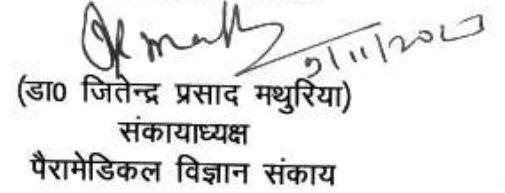 (डा0 जितेन्द्र प्रसाद मथुरिया)
संकायाध्यक्ष
पैरामेडिकल विज्ञान संकाय